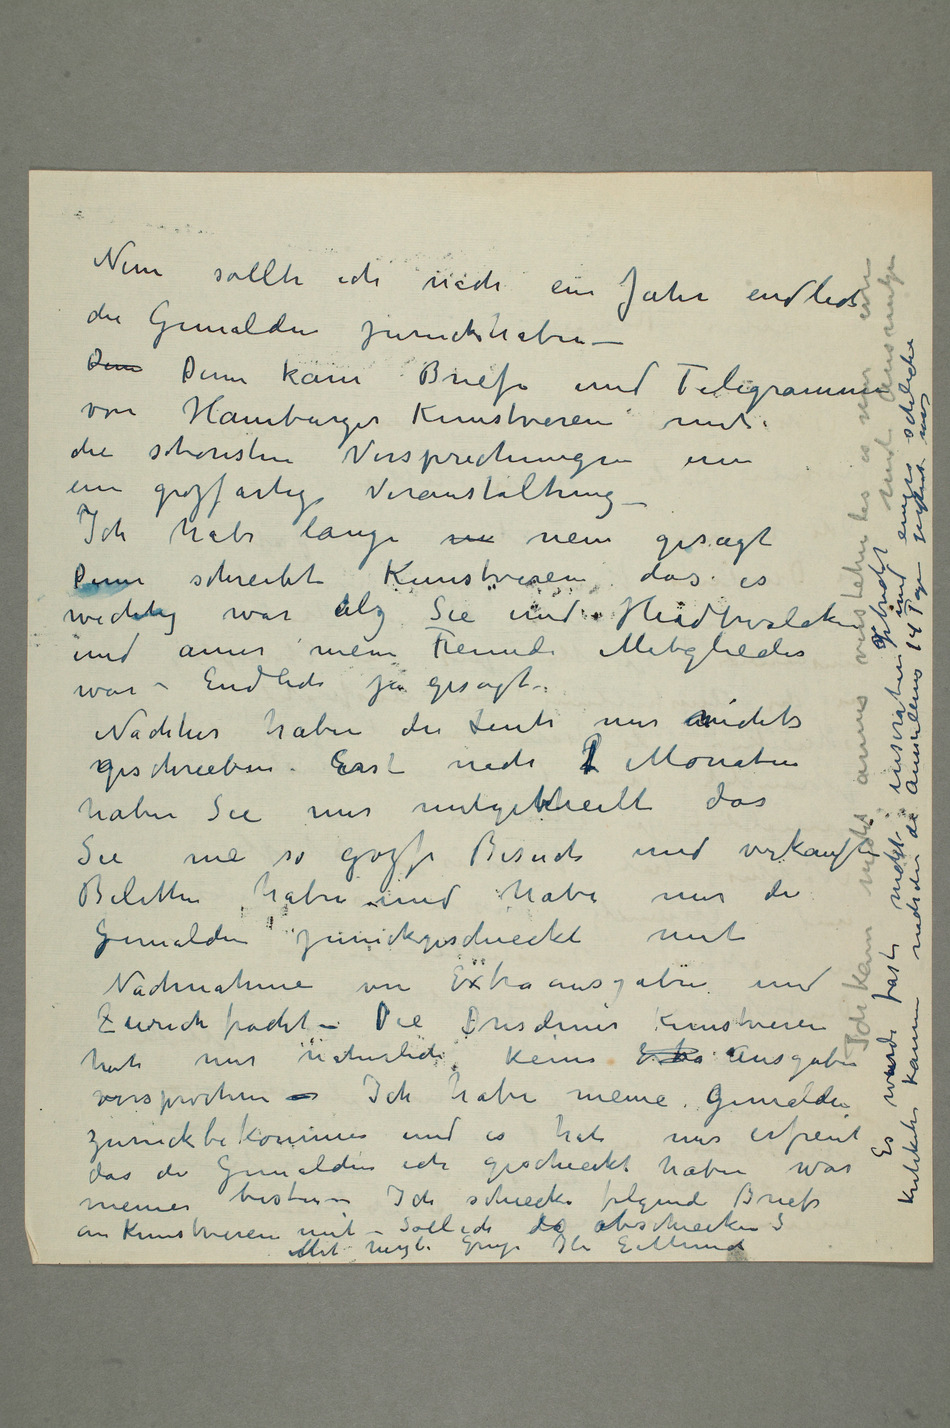 Nun sollte ich nach ein Jahr endlich
die Gemälden zurückhaben —
Dann Dann kam Briefe und Telegrammen
von Hamburger Kunstverein mit
die schönsten Versprechungen um
ein grozfartig Veranstaltung —
Ich habe lange nein gesagt
Dann schreibt Kunstverein das es
wichtig war alz Sie und Heudtwalcker
und anner meine Freunde Mitglieder
war – Endlich ja gesagt –
Nachher haben die Leute mir nichts
geschrieben. Erst nach 2 Monaten
haben Sie mir mitgetheilt das
Sie nie so gozfe Besuch und verkaufte
Biletten haben und habe mir die
Gemälden zurückgeschieckt mit
Nachnahme von Extraausgaben und
Zurückfracht – Die Dresdener Kunstverein
hat mir natürlich keine Extra Ausgaben
versprochen – Ich habe meine Gemälden
zurückbekommen und es hat mir erfreut
das die Gemälden ich geschieckt haben war
meiner besten – Ich schiecke folgende Briefe
an Kunstverein mit – Soll ich das abschiecken?
Mit herzl. Gruze Ihr E Munch
Ich kann nicht anners verstehen das es war eine
Es wurde fast nicht inseratin gebracht und
Kritiken kamen nachdem die annullens 14 Tagen